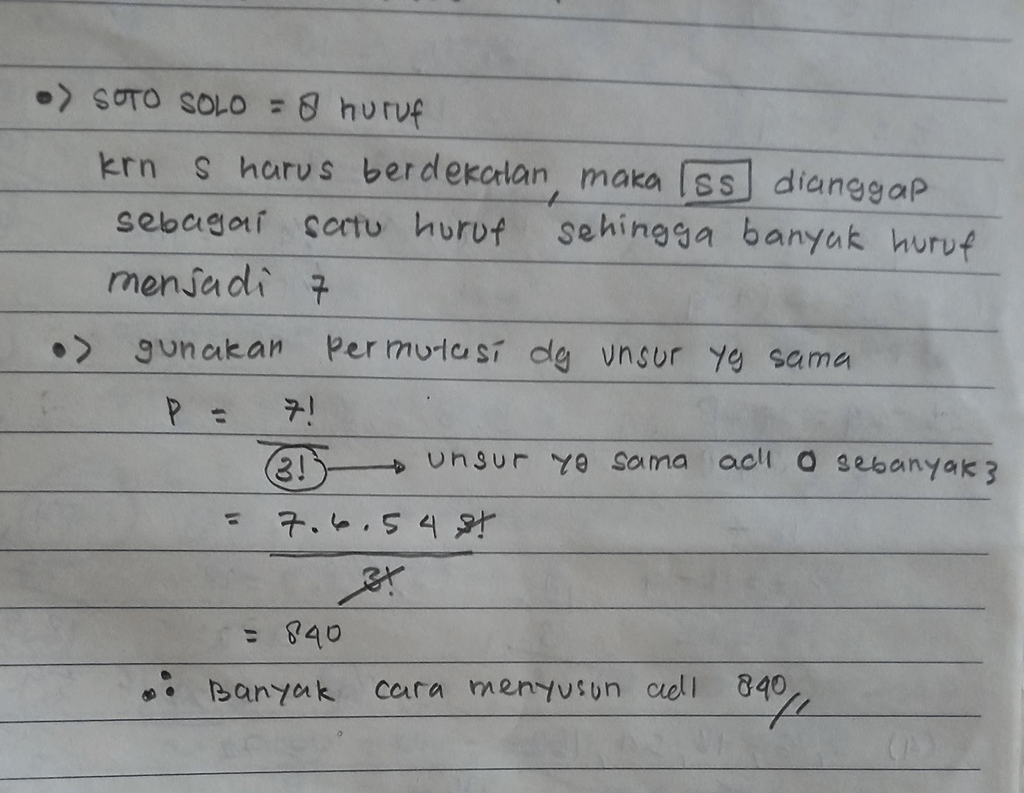 •> SOTO SOLO = 8 huruf
krn S harus berdekatan, maka SS dianggap
sebagai satu huruf sehingga banyak huruf
menjadi 7
•> gunakan Permutasi dg unsur yg sama
P = 7!
3! → unsur yg sama adl O sebanyak 3
= 7.6.5 4 3!
3!
= 840
∴ Banyak cara menyusun adl 840//